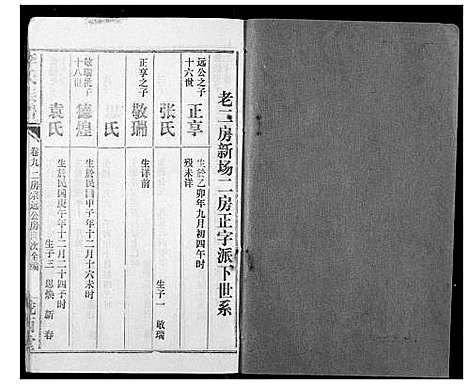 老二房新场二房正字派下世系
远公之子
十六世
正享
生於乙卯年九月初四午时
殁未详
张氏
生子一 敬瑞
正享之子
敬瑞
生详前
氏
敬瑞抚子
十八世
德煌
生於民国甲子年十二月十六未时
袁氏
生於民国庚午年十二月二十四子时
生子三 思焕 新 春
卷九 二房宗远公房